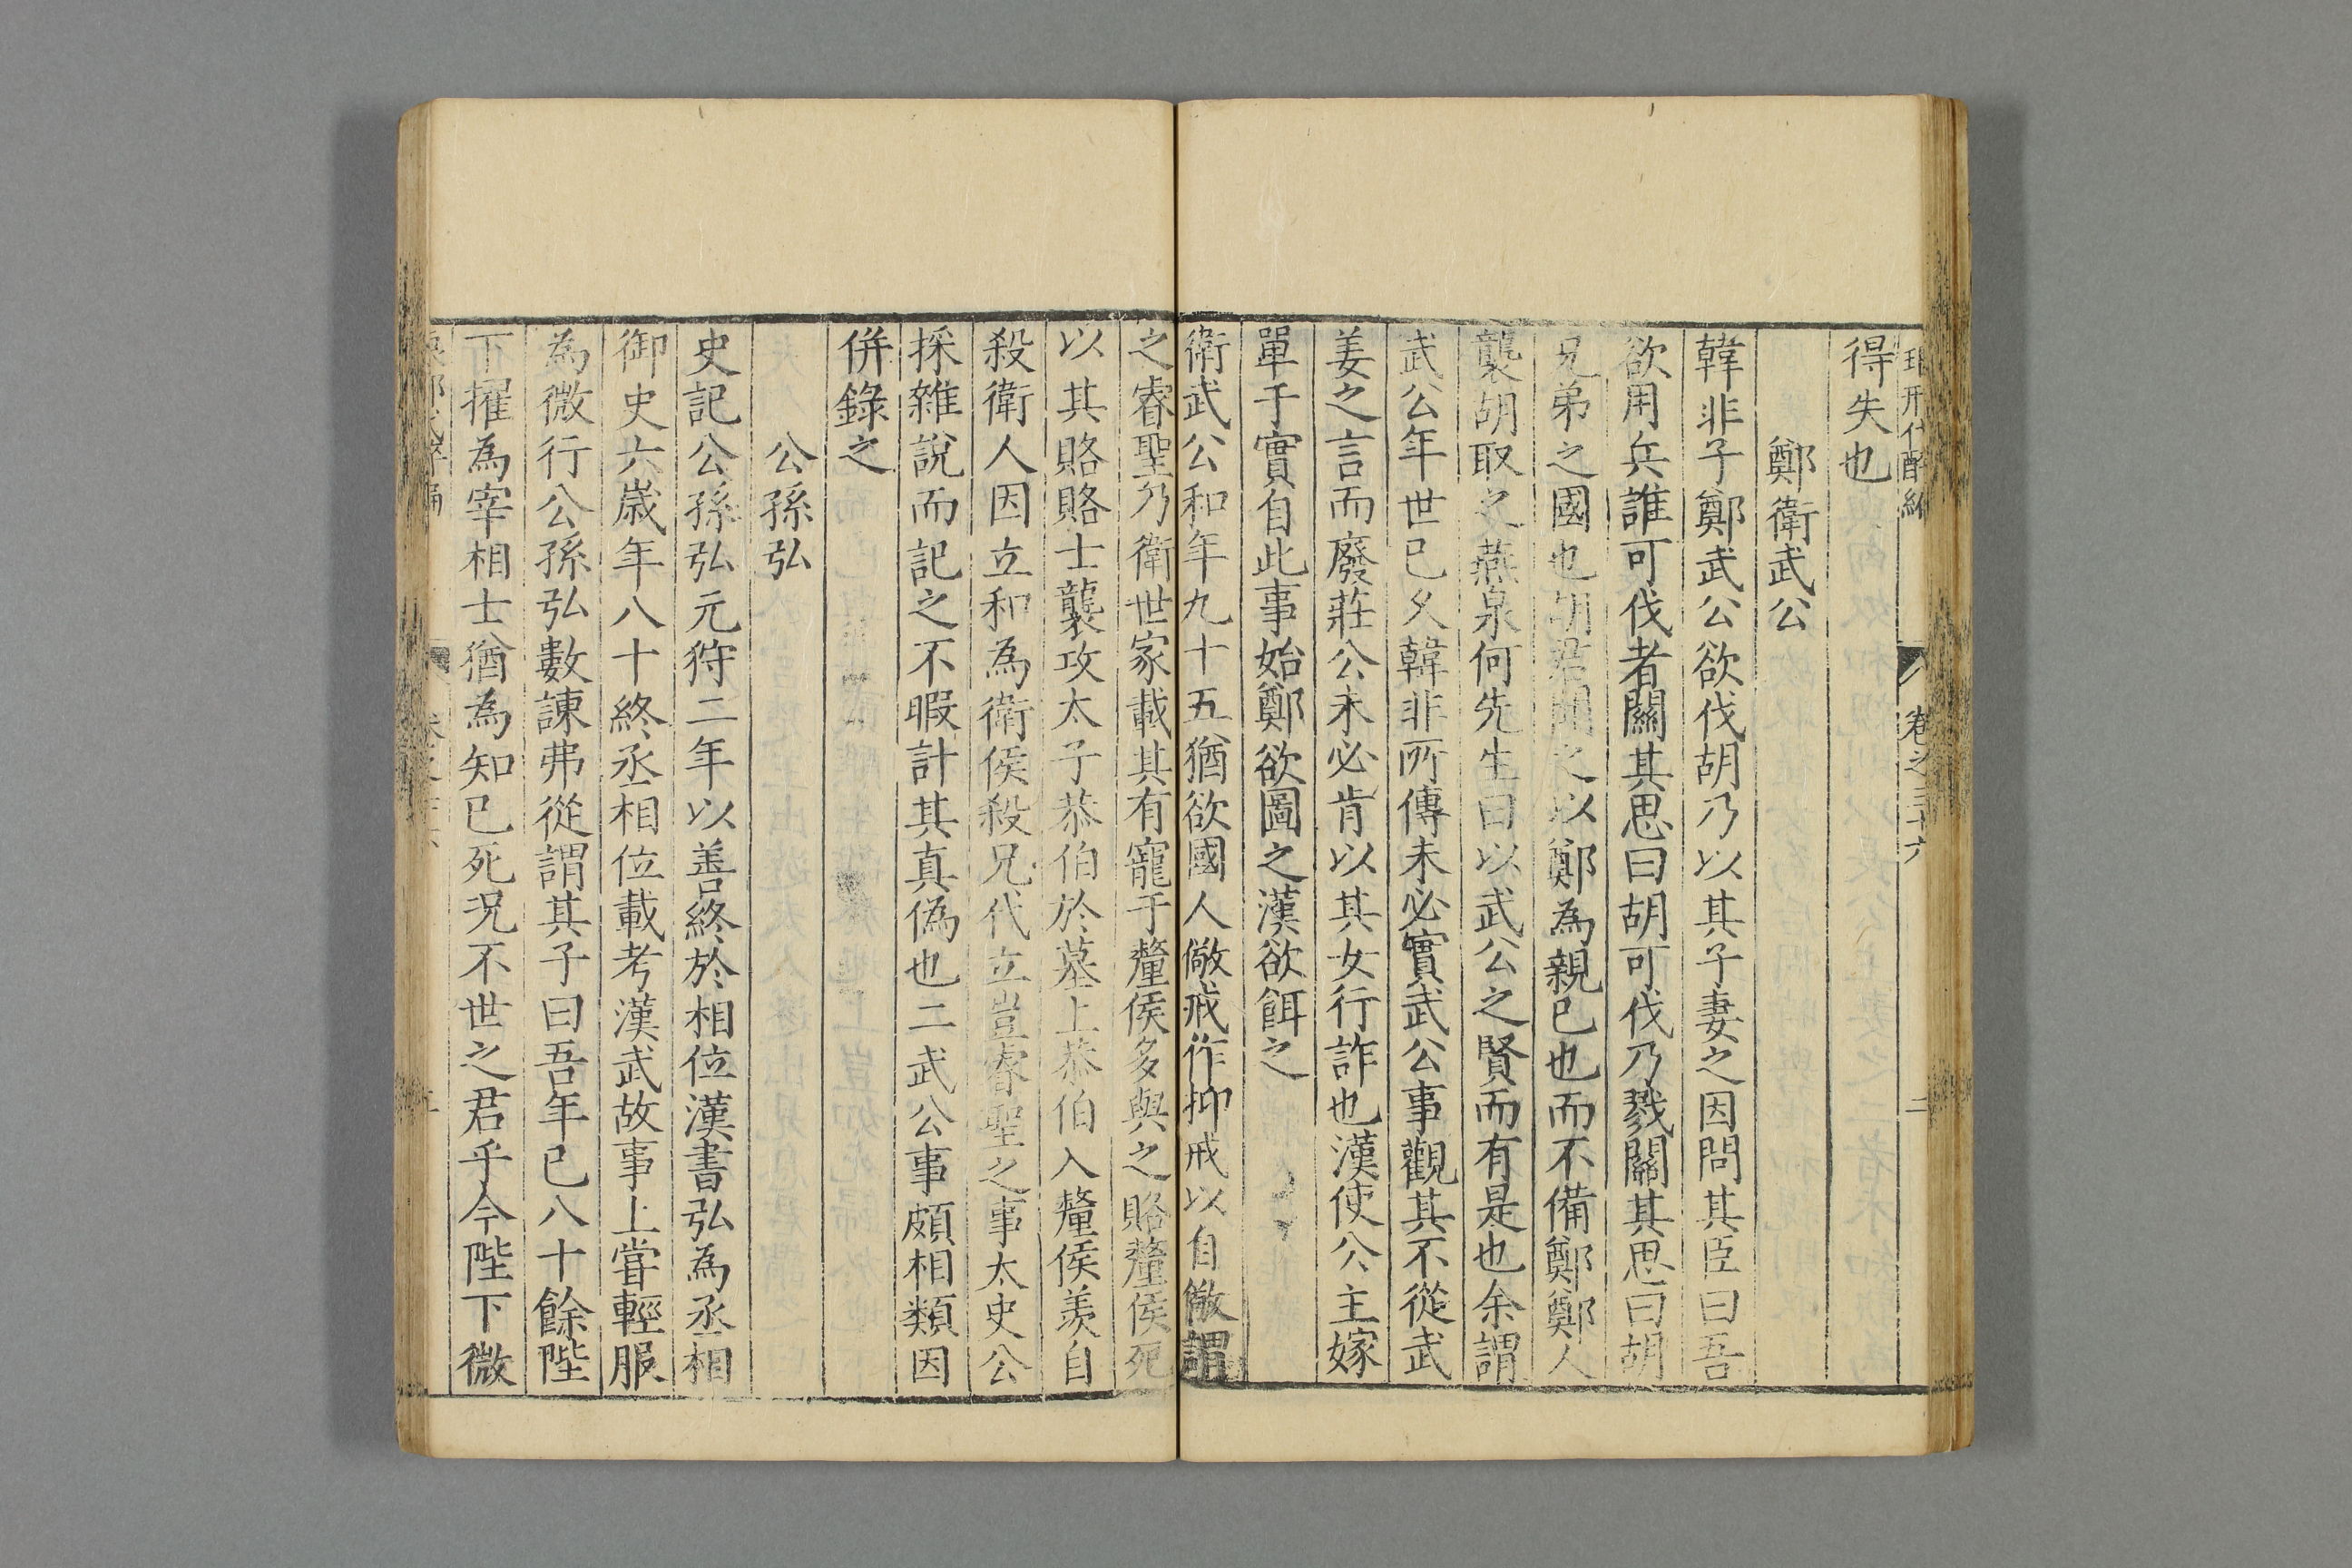 瑯邪代醉編 卷之三十六 二
得失也
鄭衛武公
韓非子鄭武公欲伐胡乃以其子妻之因問其臣曰吾
欲用兵誰可伐者關其思曰胡可伐乃戮關其思曰胡
兄弟之國也胡君聞之以鄭為親已也而不備鄭鄭人
襲胡取之燕泉何先生曰以武公之賢而有是也余謂
武公年世已久韓非所傳未必實武公事觀其不從武
姜之言而廢莊公未必肯以其女行詐也漢使公主嫁
單于實自此事始鄭欲圖之漢欲餌之
衛武公和年九十五猶欲國人儆戒作抑戒以自儆謂
之睿聖乃衛世家載其有寵于釐侯多與之賂釐侯死
以其賂賂士襲攻太子恭伯於墓上恭伯入釐侯羨自
殺衛人因立和為衛侯殺兄代立豈睿聖之事太史公
採雜說而記之不暇計其真偽也二武公事頗相類因
併錄之
公孫弘
史記公孫弘元狩二年以善終於相位漢書弘為丞相
御史六歲年八十終丞相位載考漢武故事上嘗輕服
為微行公孫弘數諫弗從謂其子曰吾年已八十餘陛
下擢為宰相士猶為知已死況不世之君乎今陛下微